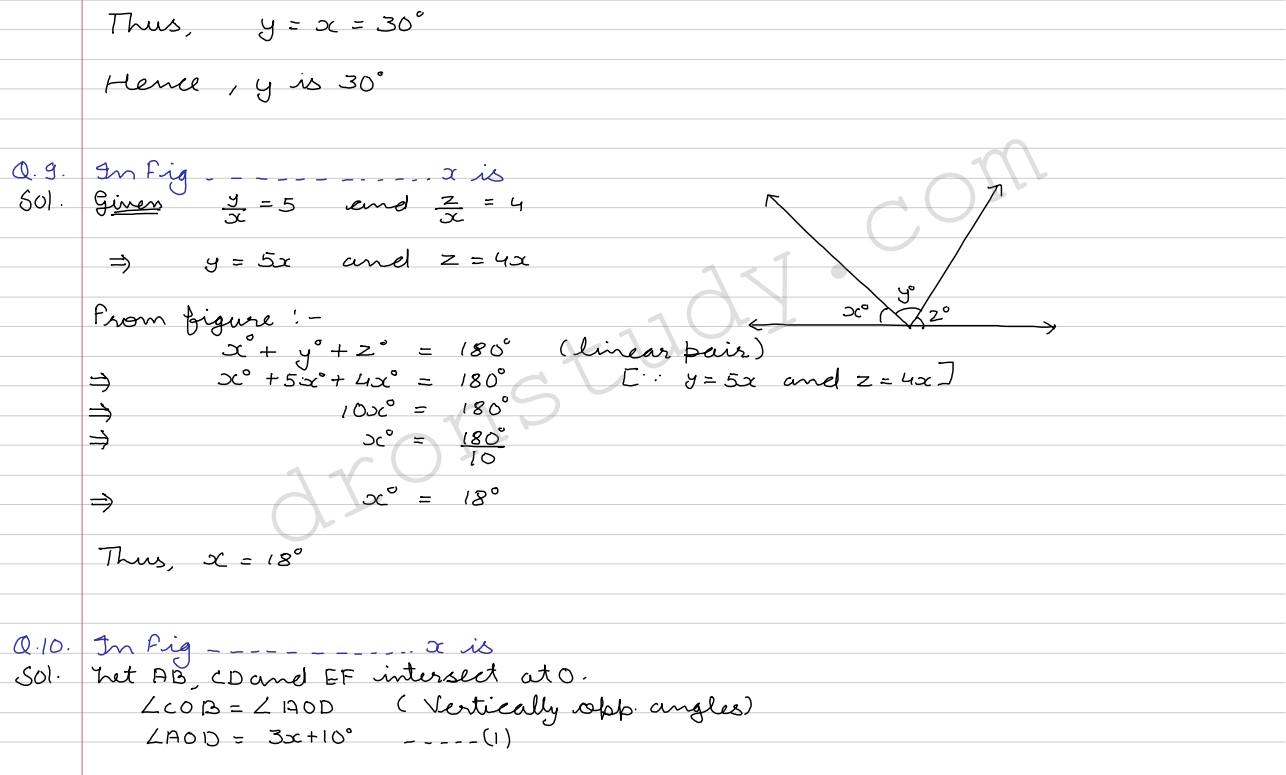 Thus, y = x = 30°
Hence, y is 30°
Q.9. In fig ------------- x is
Sol. Given y/x = 5 and z/x = 4
⇒ y = 5x and z = 4x
From figure :-
x° + y° + z° = 180° (linear pair)
⇒ x° + 5x° + 4x° = 180° [∵ y = 5x and z = 4x]
⇒ 10x° = 180°
⇒ x° = 180°/10
⇒ x° = 18°
Thus, x = 18°
x° y° z°
Q.10. In fig ------------- x is
Sol. Let AB, CD and EF intersect at O.
∠COB = ∠AOD (Vertically opp. angles)
∠AOD = 3x+10° -----(1)
dronstudy.com